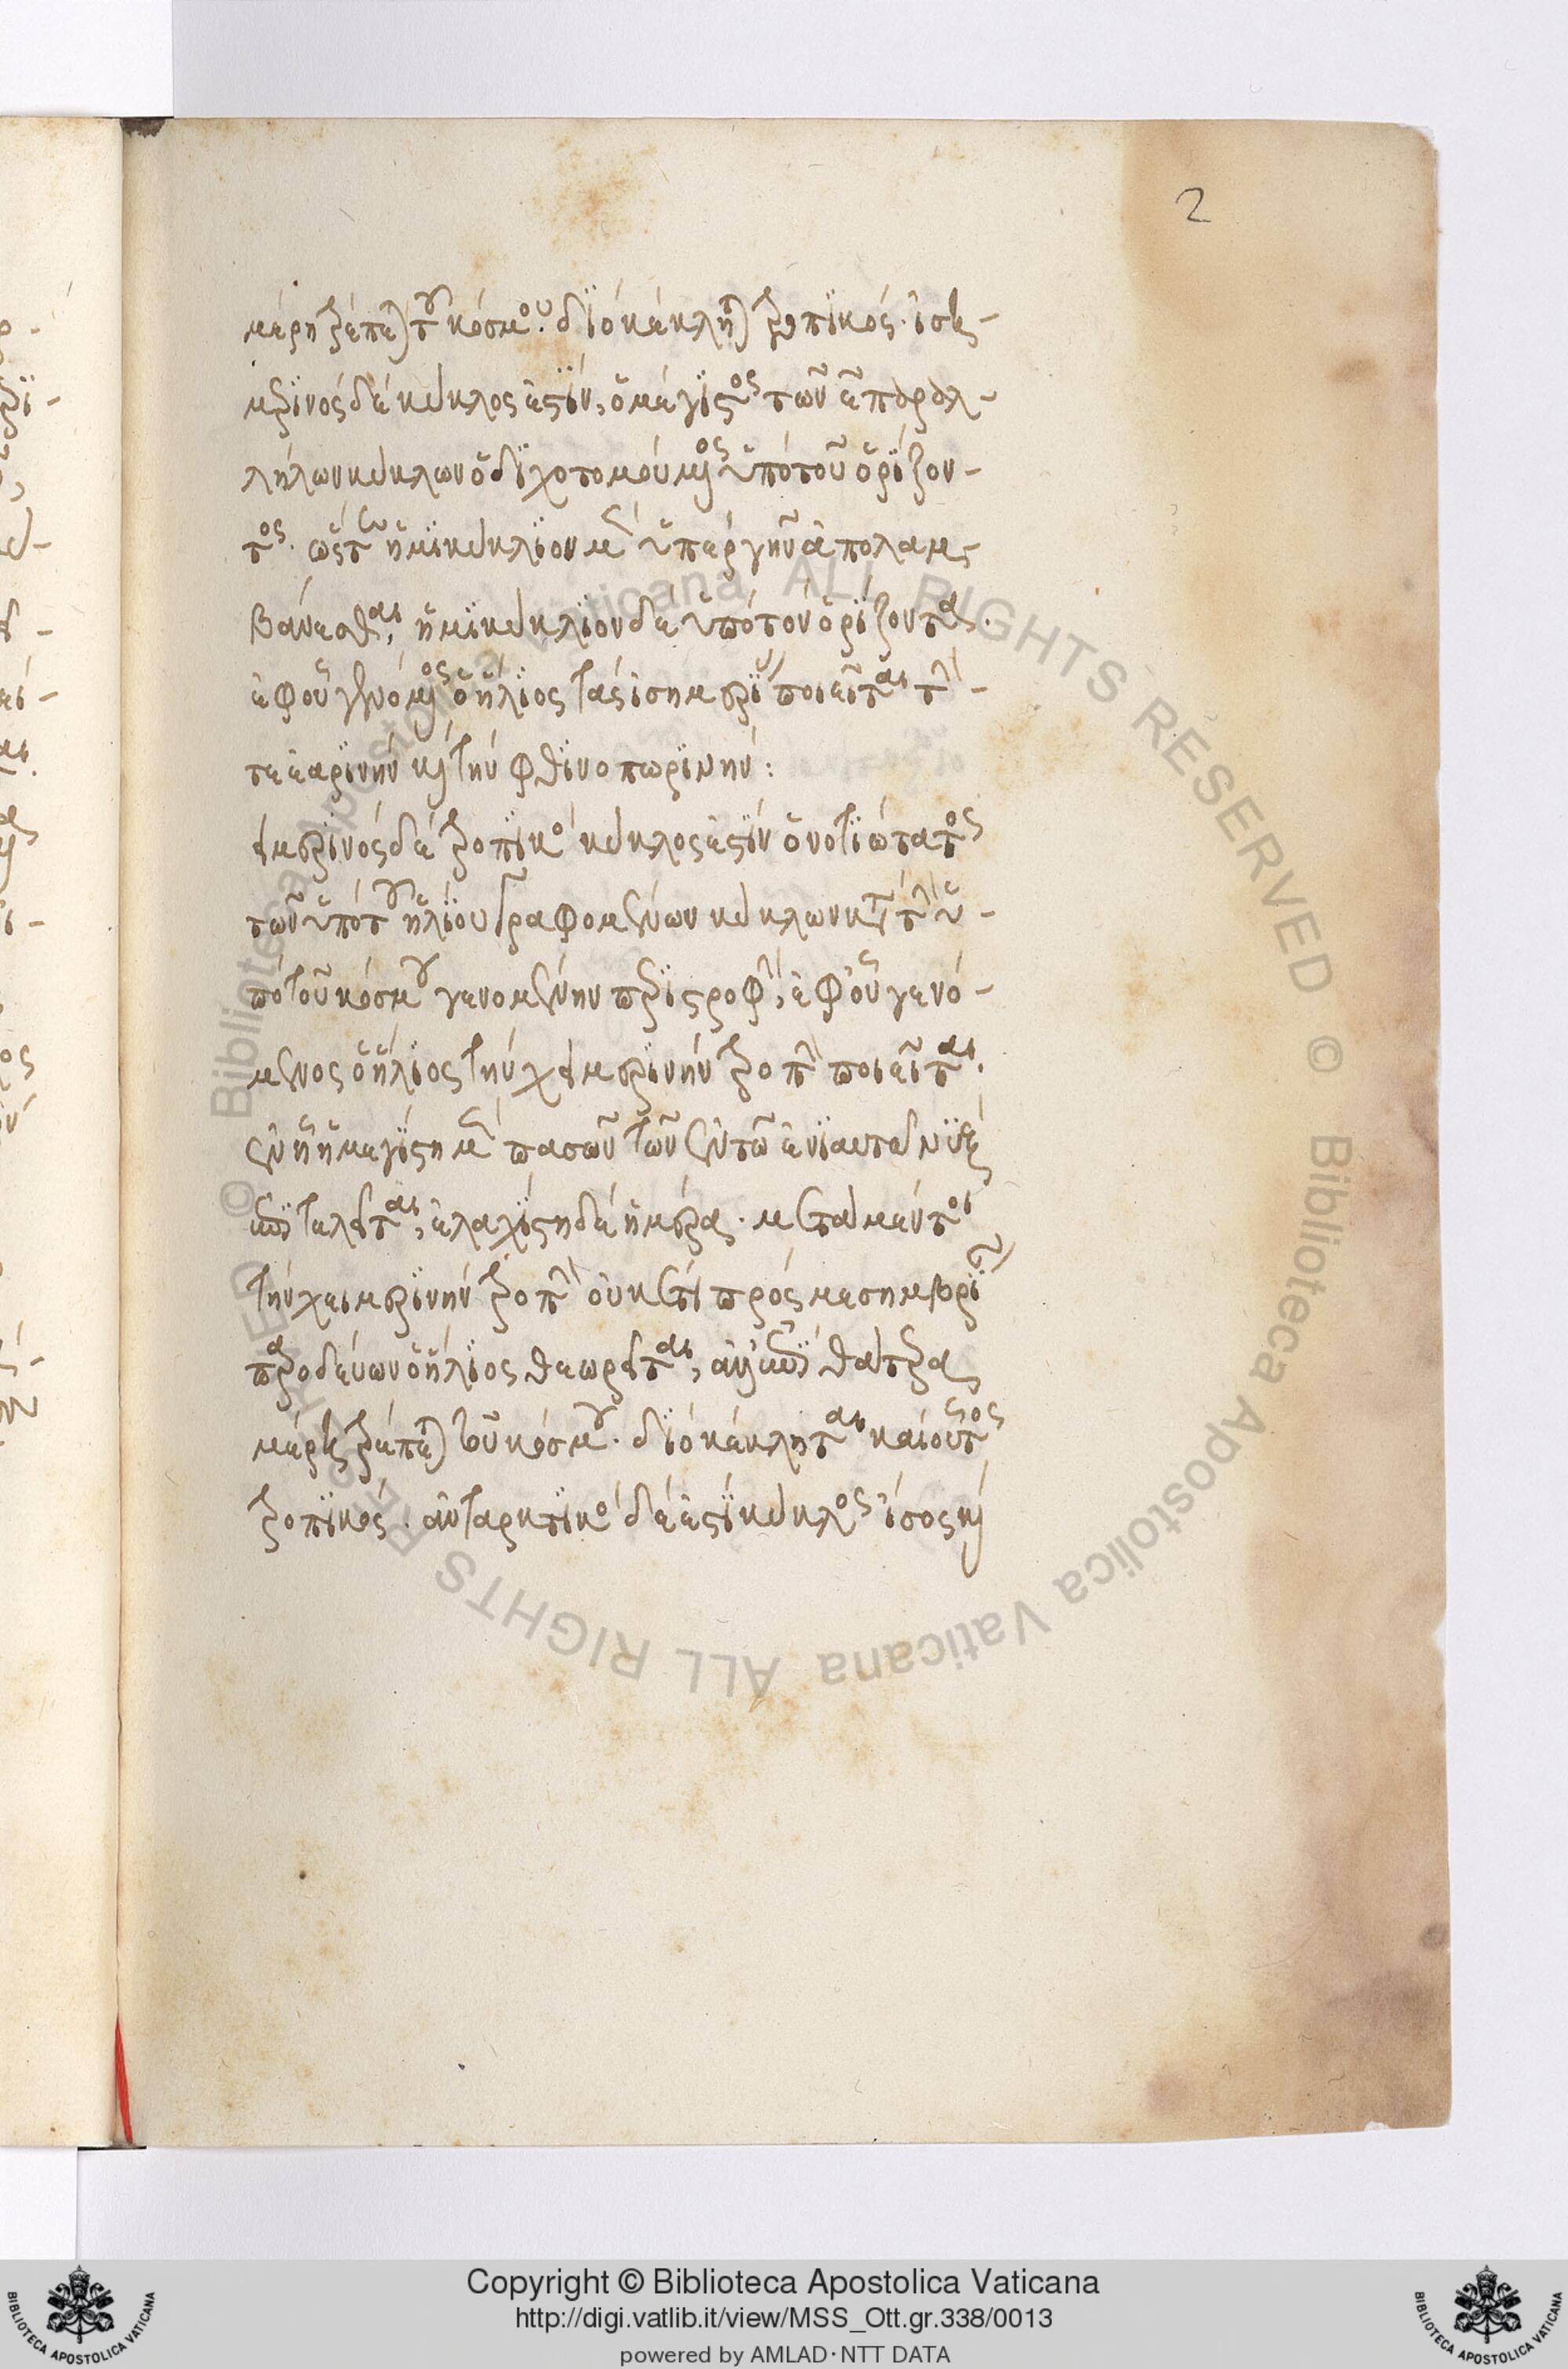 2
μέρη τρέπεται τοῦ κόσμου. διὸ κέκληται τροπικός. ἰση-
μερινὸς δὲ κύκλος ἐστὶν, ὁ μέγιστος τῶν ε παραλ-
λήλων κύκλων ὁ διχοτομούμενος ὑπὸ τοῦ ὁρίζον-
τος. ὥστε ἡμικύκλιον μὲν ὑπὲρ γῆν ἀπολαμ-
βάνεσθαι, ἡμικύκλιον δὲ ὑπὸ τὸν ὁρίζοντα.
ἐφ οὗ γενόμενος ὁ ἥλιος τὰς ἰσημερίας ποιεῖται τήν -
τε ἐαρινὴν καὶ τὴν φθινοπωρινήν:
χειμερινὸς δὲ τροπικὸς κύκλος ἐστὶν ὁ νοτιώτατος
τῶν ὑπὸ τοῦ ἡλίου γραφομένων κύκλων κατὰ τὴν ὑ-
πὸ τοῦ κόσμου γενομένην περιστροφὴν, ἐφ' οὗ γενό-
μενος ὁ ἥλιος τὴν χειμερινὴν τροπὴν ποιεῖται.
ἐν ᾗ ἡ μεγίστη μὲν πασῶν τῶν ἐν τῷ ἐνιαυτῷ νὺξ
ἐπιτελεῖται, ἐλαχίστη δὲ ἡμέρα. μετὰ μέντοι
τὴν χειμερινὴν τροπὴν οὐκέτι πρὸς μεσημβρίαν
παροδεύων ὁ ἥλιος θεωρεῖται, ἀλλ' ἐπὶ θάτερα
μέρη τρέπεται τοῦ κόσμου. διὸ κέκληται καὶ οὗτος
τροπικός. ἀνταρκτικὸς δέ ἐστι κύκλος ἴσος καὶ
Copyright © Biblioteca Apostolica Vaticana
http://digi.vatlib.it/view/MSS_Ott.gr.338/0013
powered by AMLAD·NTT DATA
© Biblioteca Apostolica Vaticana ALL RIGHTS RESERVED © Biblioteca Apostolica Vaticana ALL RIGHTS RESERVED
BIBLIOTECA APOSTOLICA VATICANA
BIBLIOTECA APOSTOLICA VATICANA